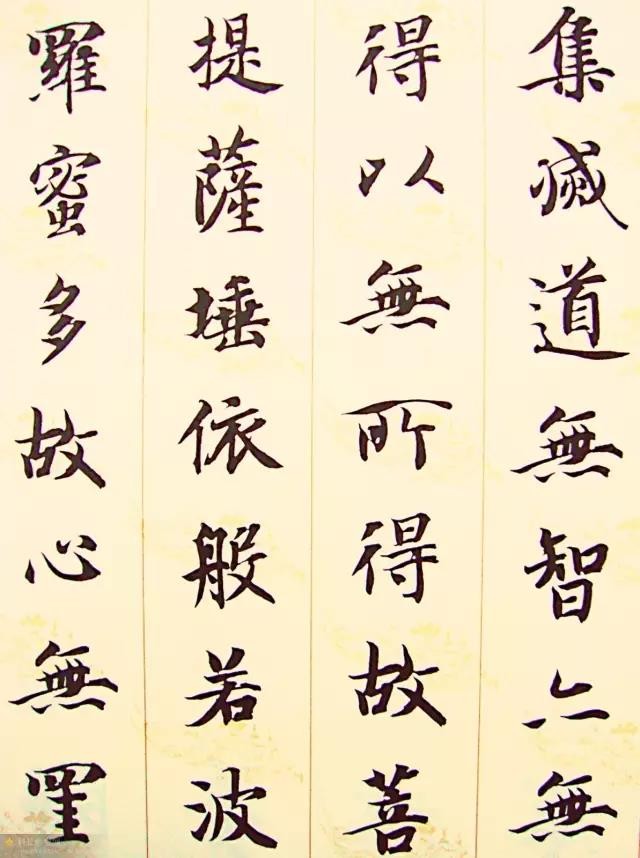 集滅道無智亦無
得以無所得故菩
提薩埵依般若波
羅蜜多故心無罣